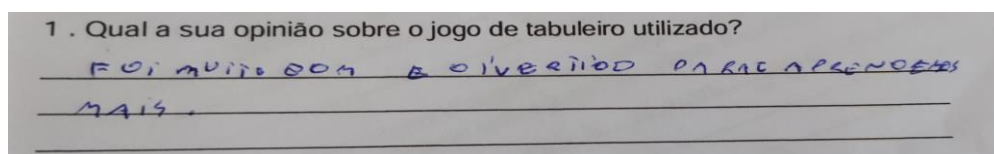 1 . Qual a sua opinião sobre o jogo de tabuleiro utilizado?
FOI MUITO BOM E DIVERTIDO PARA APRENDERMOS
MAIS.